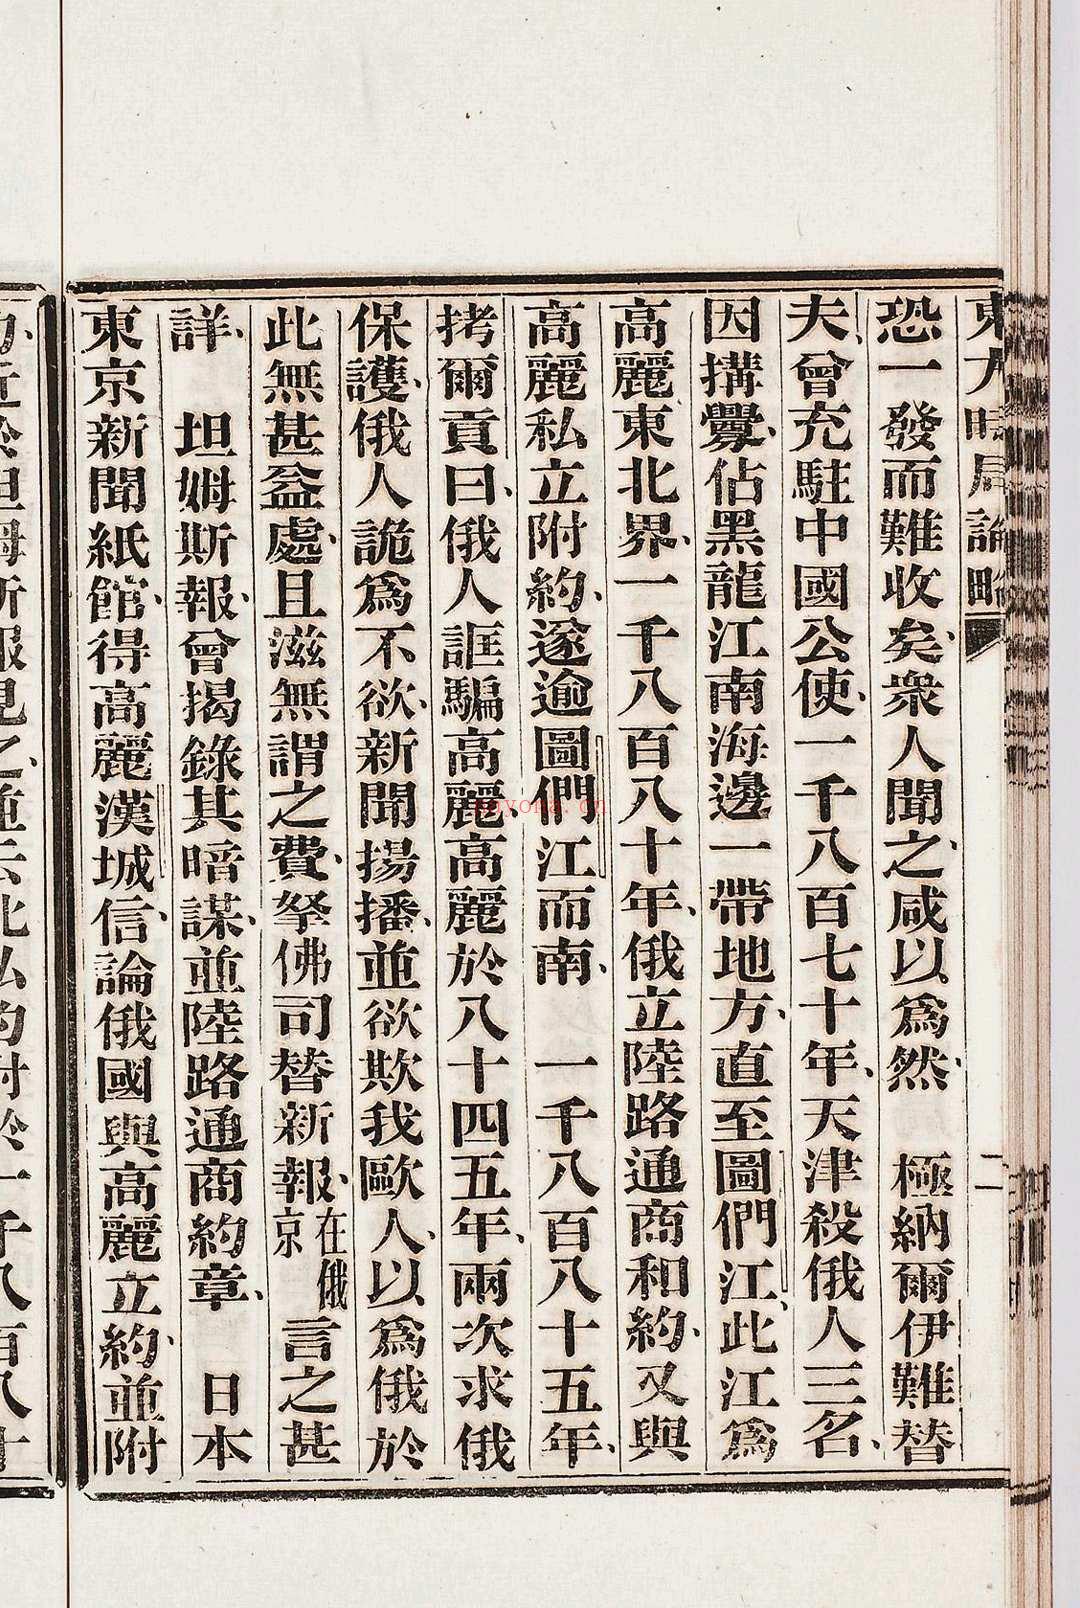 東方時局論略
二
恐一發而難收矣、衆人聞之、咸以爲然、　極納爾伊難替
夫、曾充駐中國公使、一千八百七十年、天津殺俄人三名、
因搆釁、佔黑龍江南海邊一帶地方、直至圖們江、此江爲
高麗東北界、一千八百八十年、俄立陸路通商和約、又與
高麗私立附約、遂逾圖們江而南、　一千八百八十五年、
拷爾貢曰、俄人誆騙高麗、高麗於八十四五年、兩次求俄
保護、俄人詭爲不欲、新聞揚播、並欲欺我歐人、以爲俄於
此無甚益處、且滋無謂之費、孥佛司替新報、在俄京言之甚
詳、　坦姆斯報、曾揭錄其暗謀、並陸路通商約章、　日本
東京新聞紙館、得高麗漢城信、論俄國與高麗立約、並附